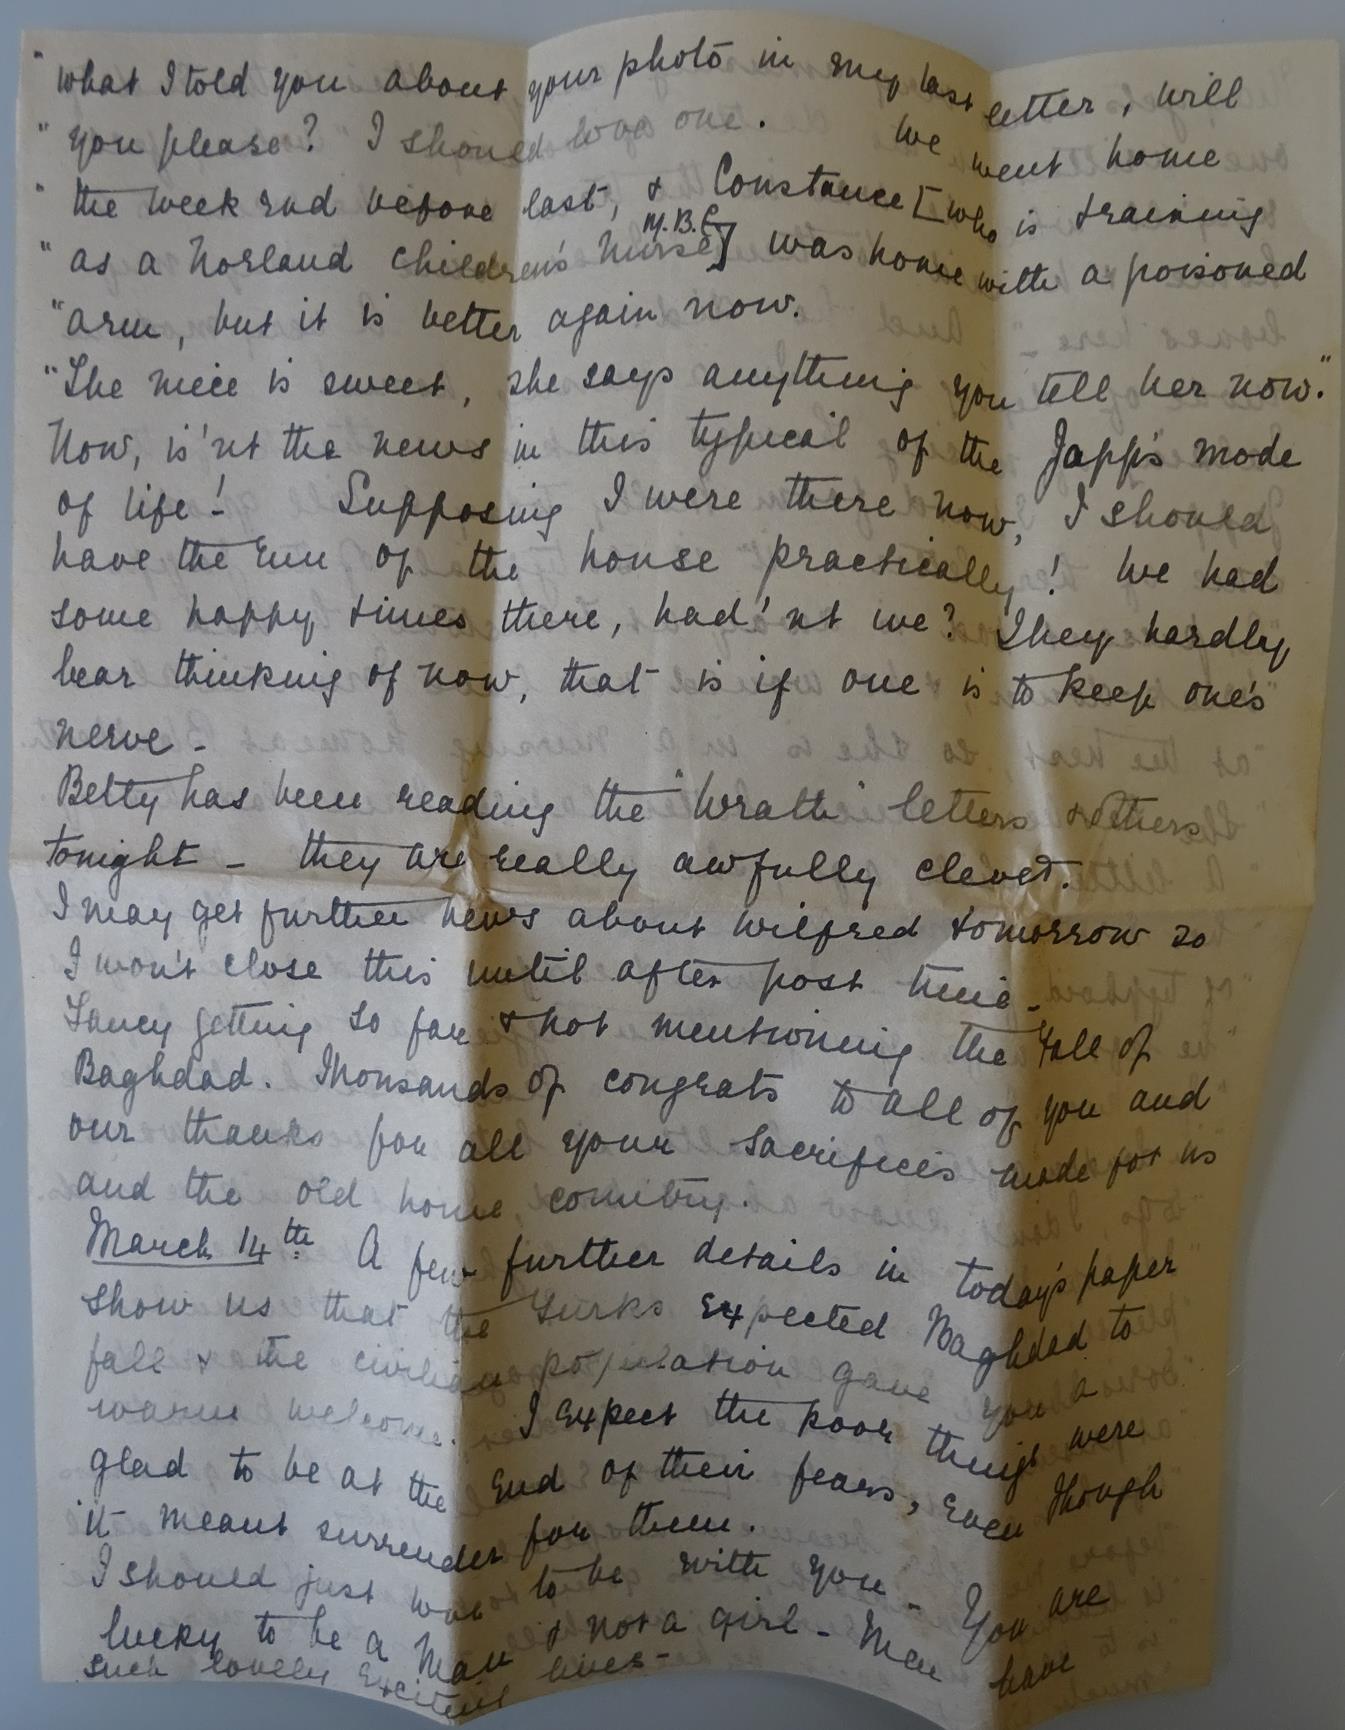 "what I told you about your photo in my last letter, will
"you please? I should love one. We went home
"the week end before last, & Constance [who is training
"as a Norland children's nurse M.B.C] was home with a poisoned
"arm, but it is better again now.
"The niece is sweet, she says anything you tell her now."
Now, is'nt the news in this typical of the Japp's mode
of life! Supposing I were there now, I should
have the run of the house practically! We had
some happy times there, had'nt we? They hardly
bear thinking of now, that is if one is to keep one's
nerve -
Betty has been reading the "Wrath" letters & others
tonight - they are really awfully clever.
I may get further news about Wilfred tomorrow so
I won't close this until after post time -
Fancy getting so far & not mentioning the Fall of
Baghdad. Thousands of congrats to all of you and
our thanks for all your sacrifices made for us
and the old home country.
March 14th A few further details in today's paper
show us that the Turks expected Baghdad to
fall & the civilian population gave you a
warm welcome. I expect the poor things were
glad to be at the end of their fears, even though
it meant surrender for them.
I should just love to be with you - You are
lucky to be a man & not a girl - Men have
such lovely exciting lives -